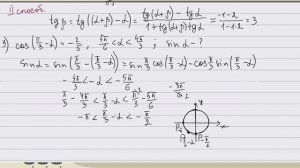 II способ.
tg β = tg((α+β) − α) = (tg(α+β) − tg α)/(1 + tg(α+β) tg α) = (−1−2)/(1−1·2) = 3
3) cos(π/3 − α) = −2/5, 5π/6 < α < 4π/3, sin α − ?
sin α = sin(π/3 − (π/3 − α)) = sin π/3 cos(π/3 − α) − cos π/3 sin(π/3 − α)
− 4π/3 < −α < − 5π/6
π/3 − 4π/3 < π/3 − α < π/3 − 5π/6
− π < π/3 − α < − π/2